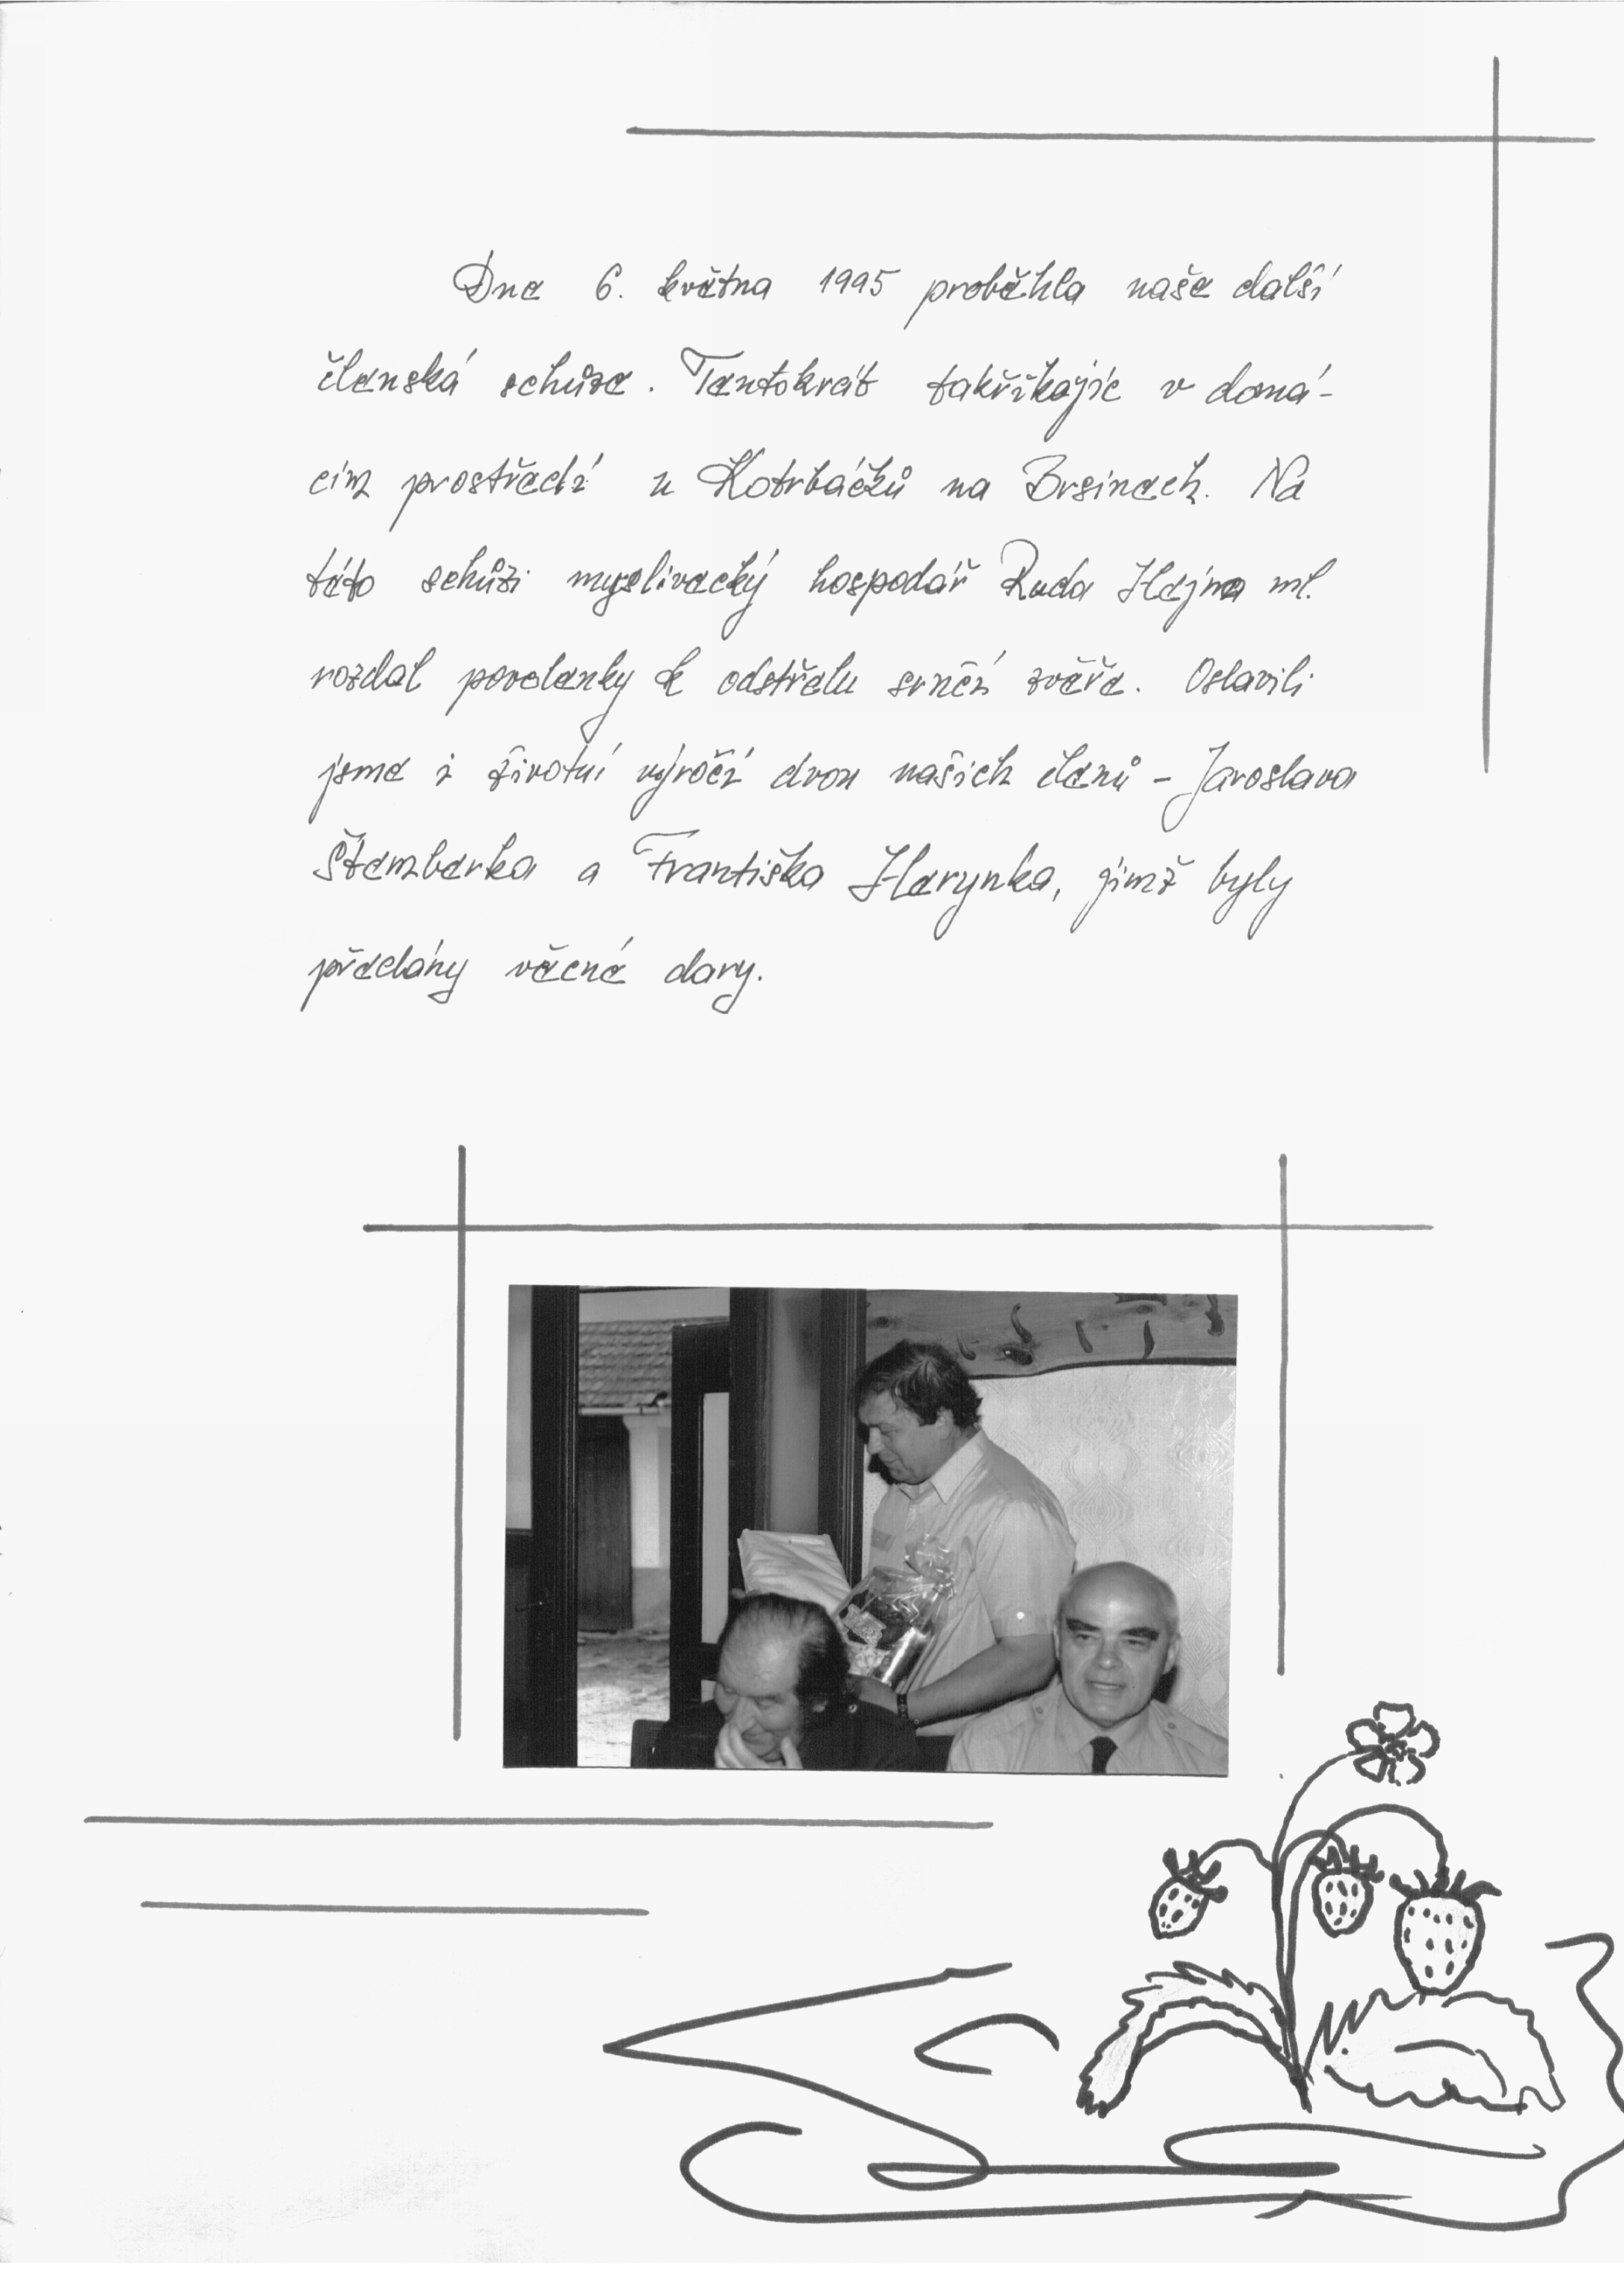 Dne 6. května 1995 proběhla naše další
členská schůze. Tentokrát takříkajíc v domá-
cím prostředí u Kotrbáčků na Brsinech. Na
této schůzi myslivecký hospodář Ruda Hejna ml.
rozdal povolenky k odstřelu srnčí zvěře. Oslavili
jsme i životní výročí dvou našich členů - Jaroslava
Štemberka a Františka Harynka, jimž byly
předány věcné dary.